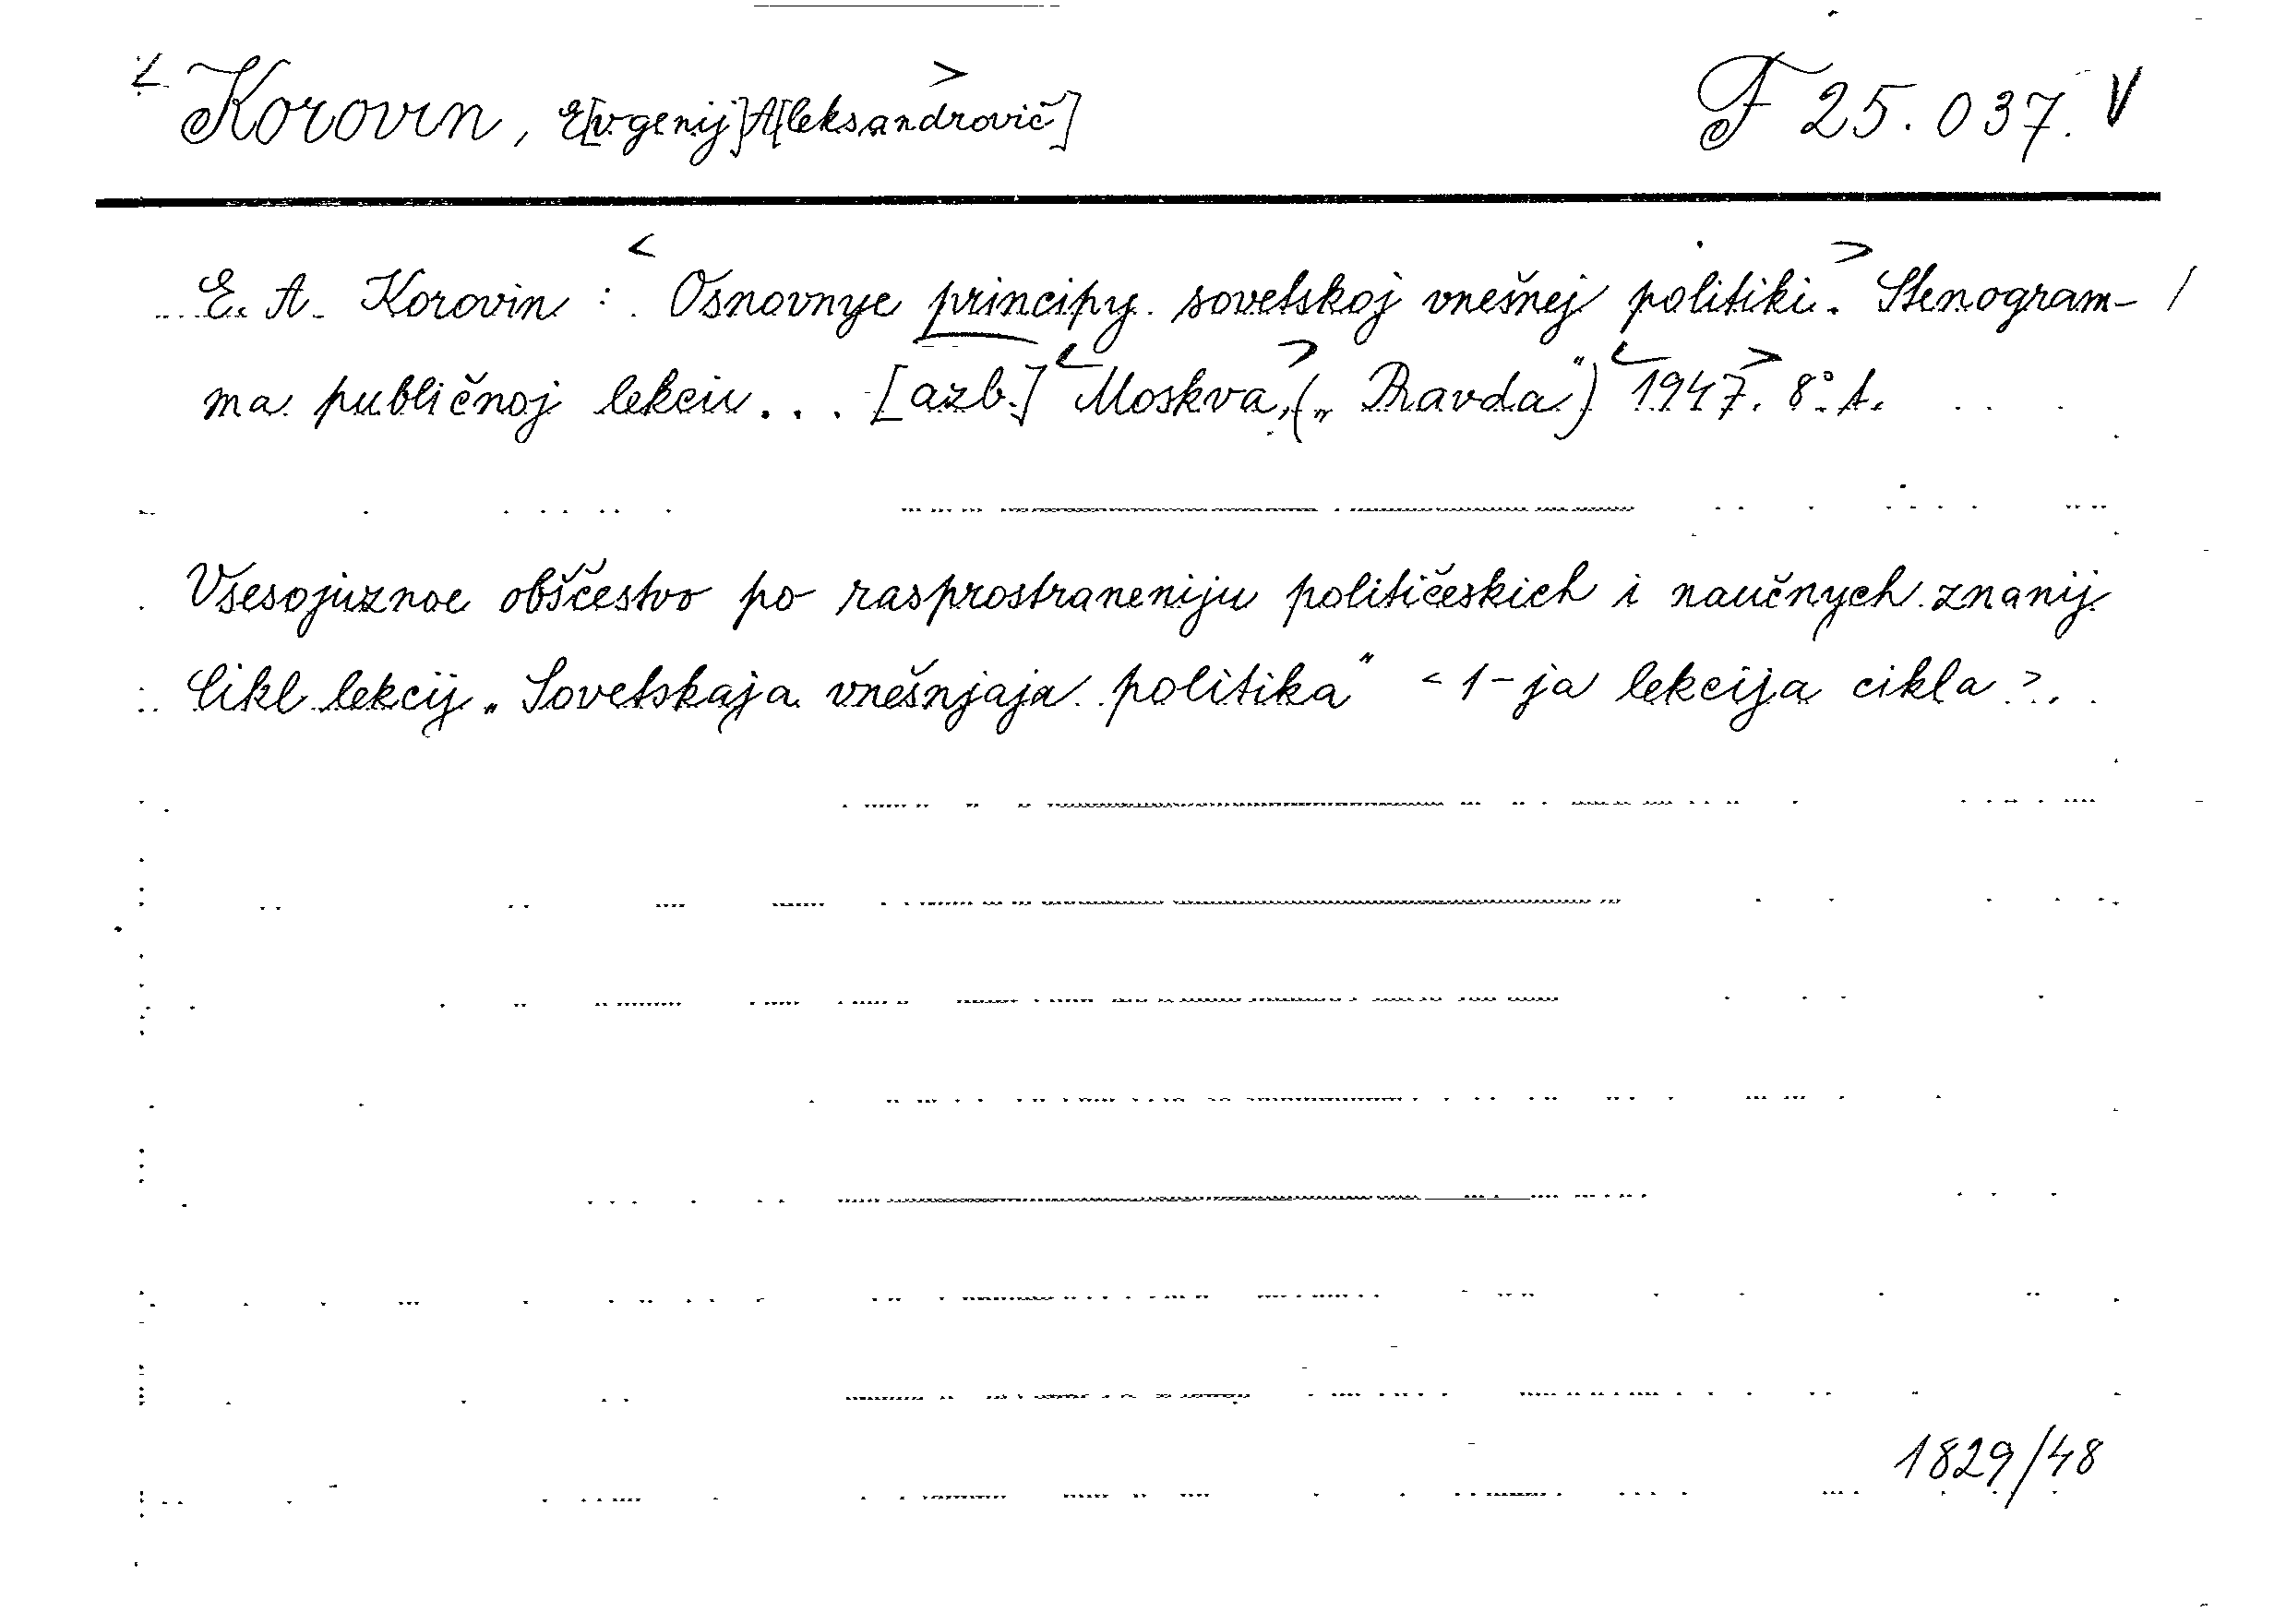 <Korovin, E[vgenij] A[leksandrovič]> F 25.037. V
E. A. Korovin: <Osnovnye principy sovetskoj vnešnej politiki.> Stenogram- /
ma publičnoj lekcii... [azb.] <Moskva,> („Pravda") <1947.> 8°.
Vsesojuznoe obščestvo po rasprostraneniju političeskich i naučnych znanij.
Cikl lekcij „Sovetskaja vnešnjaja politika" <1-ja lekcija cikla>.
1829/48